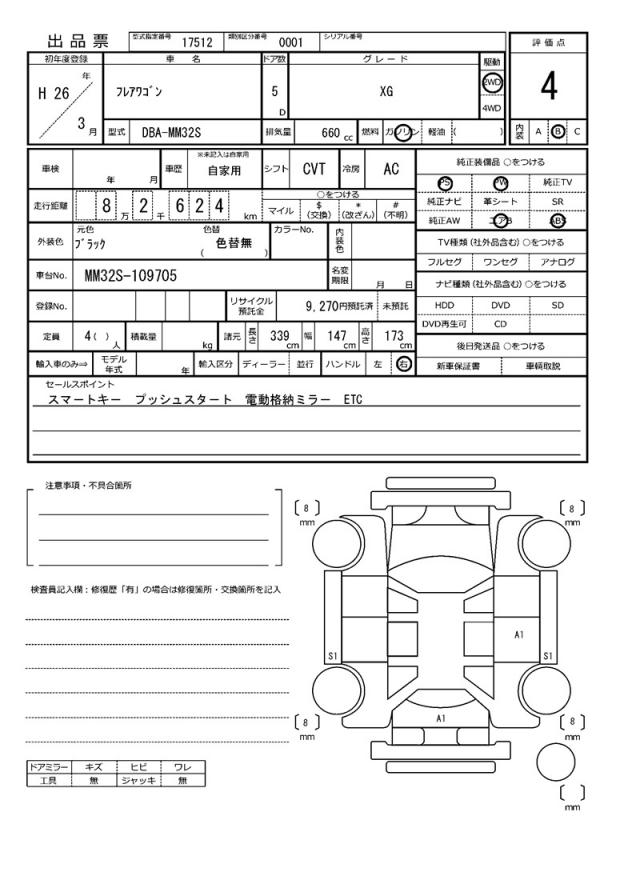 出品票 型式指定番号 17512 類別区分番号 0001 シリアル番号
評価点
4
内装 A B C
初年度登録 車名 ドア数 グレード 駆動
H 26 年 3 月
フレアワゴン 5 D XG 2WD 4WD
型式 DBA-MM32S 排気量 660 cc 燃料 ガソリン 軽油 ( )
車検 年 月 車歴 ※未記入は自家用 自家用 シフト CVT 冷房 AC
走行距離 8 万 2 千 6 2 4 km
○をつける
マイル $(交換) *(改ざん) #(不明)
外装色 元色 ブラック 色替 色替無 ( ) カラーNo. 内装色
車台No. MM32S-109705 名変期限 月 日
登録No. リサイクル預託金 9,270円預託済 未預託
定員 4( ) 人 積載量 kg 諸元 長さ 339 cm 幅 147 cm 高さ 173 cm
輸入車のみ⇒ モデル年式 年 輸入区分 ディーラー 並行 ハンドル 左 右
純正装備品 ○をつける
PS PW 純正TV
純正ナビ 革シート SR
純正AW エアB ABS
TV種類(社外品含む)○をつける
フルセグ ワンセグ アナログ
ナビ種類(社外品含む)○をつける
HDD DVD SD
DVD再生可 CD
後日発送品 ○をつける
新車保証書 車輌取説
セールスポイント
スマートキー プッシュスタート 電動格納ミラー ETC
注意事項・不具合箇所
検査員記入欄：修復歴「有」の場合は修復箇所・交換箇所を記入
8 mm
8 mm
S1
A1
S1
A1
8 mm
8 mm
mm
ドアミラー キズ ヒビ ワレ
工具 無 ジャッキ 無